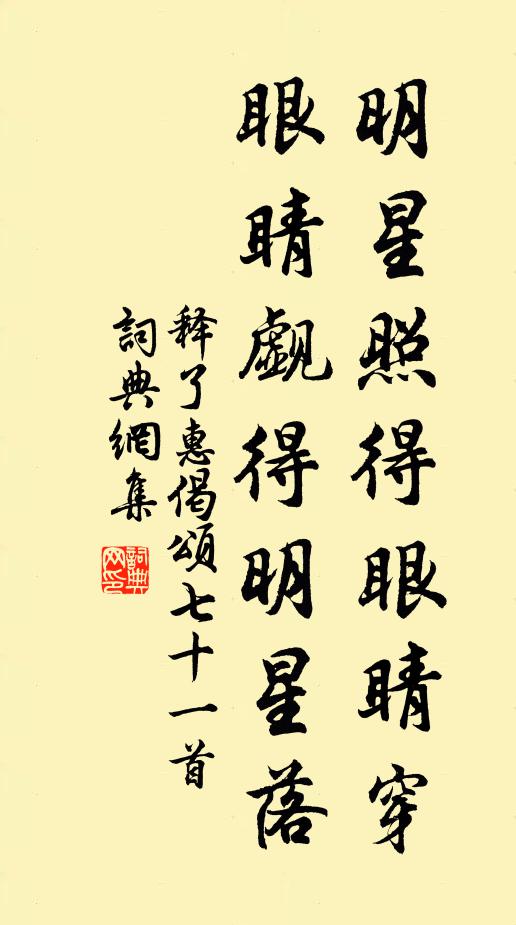 明星照得眼睛穿
眼睛覷得明星落
释了惠偈頌七十一首
詞典網集
詞典网印